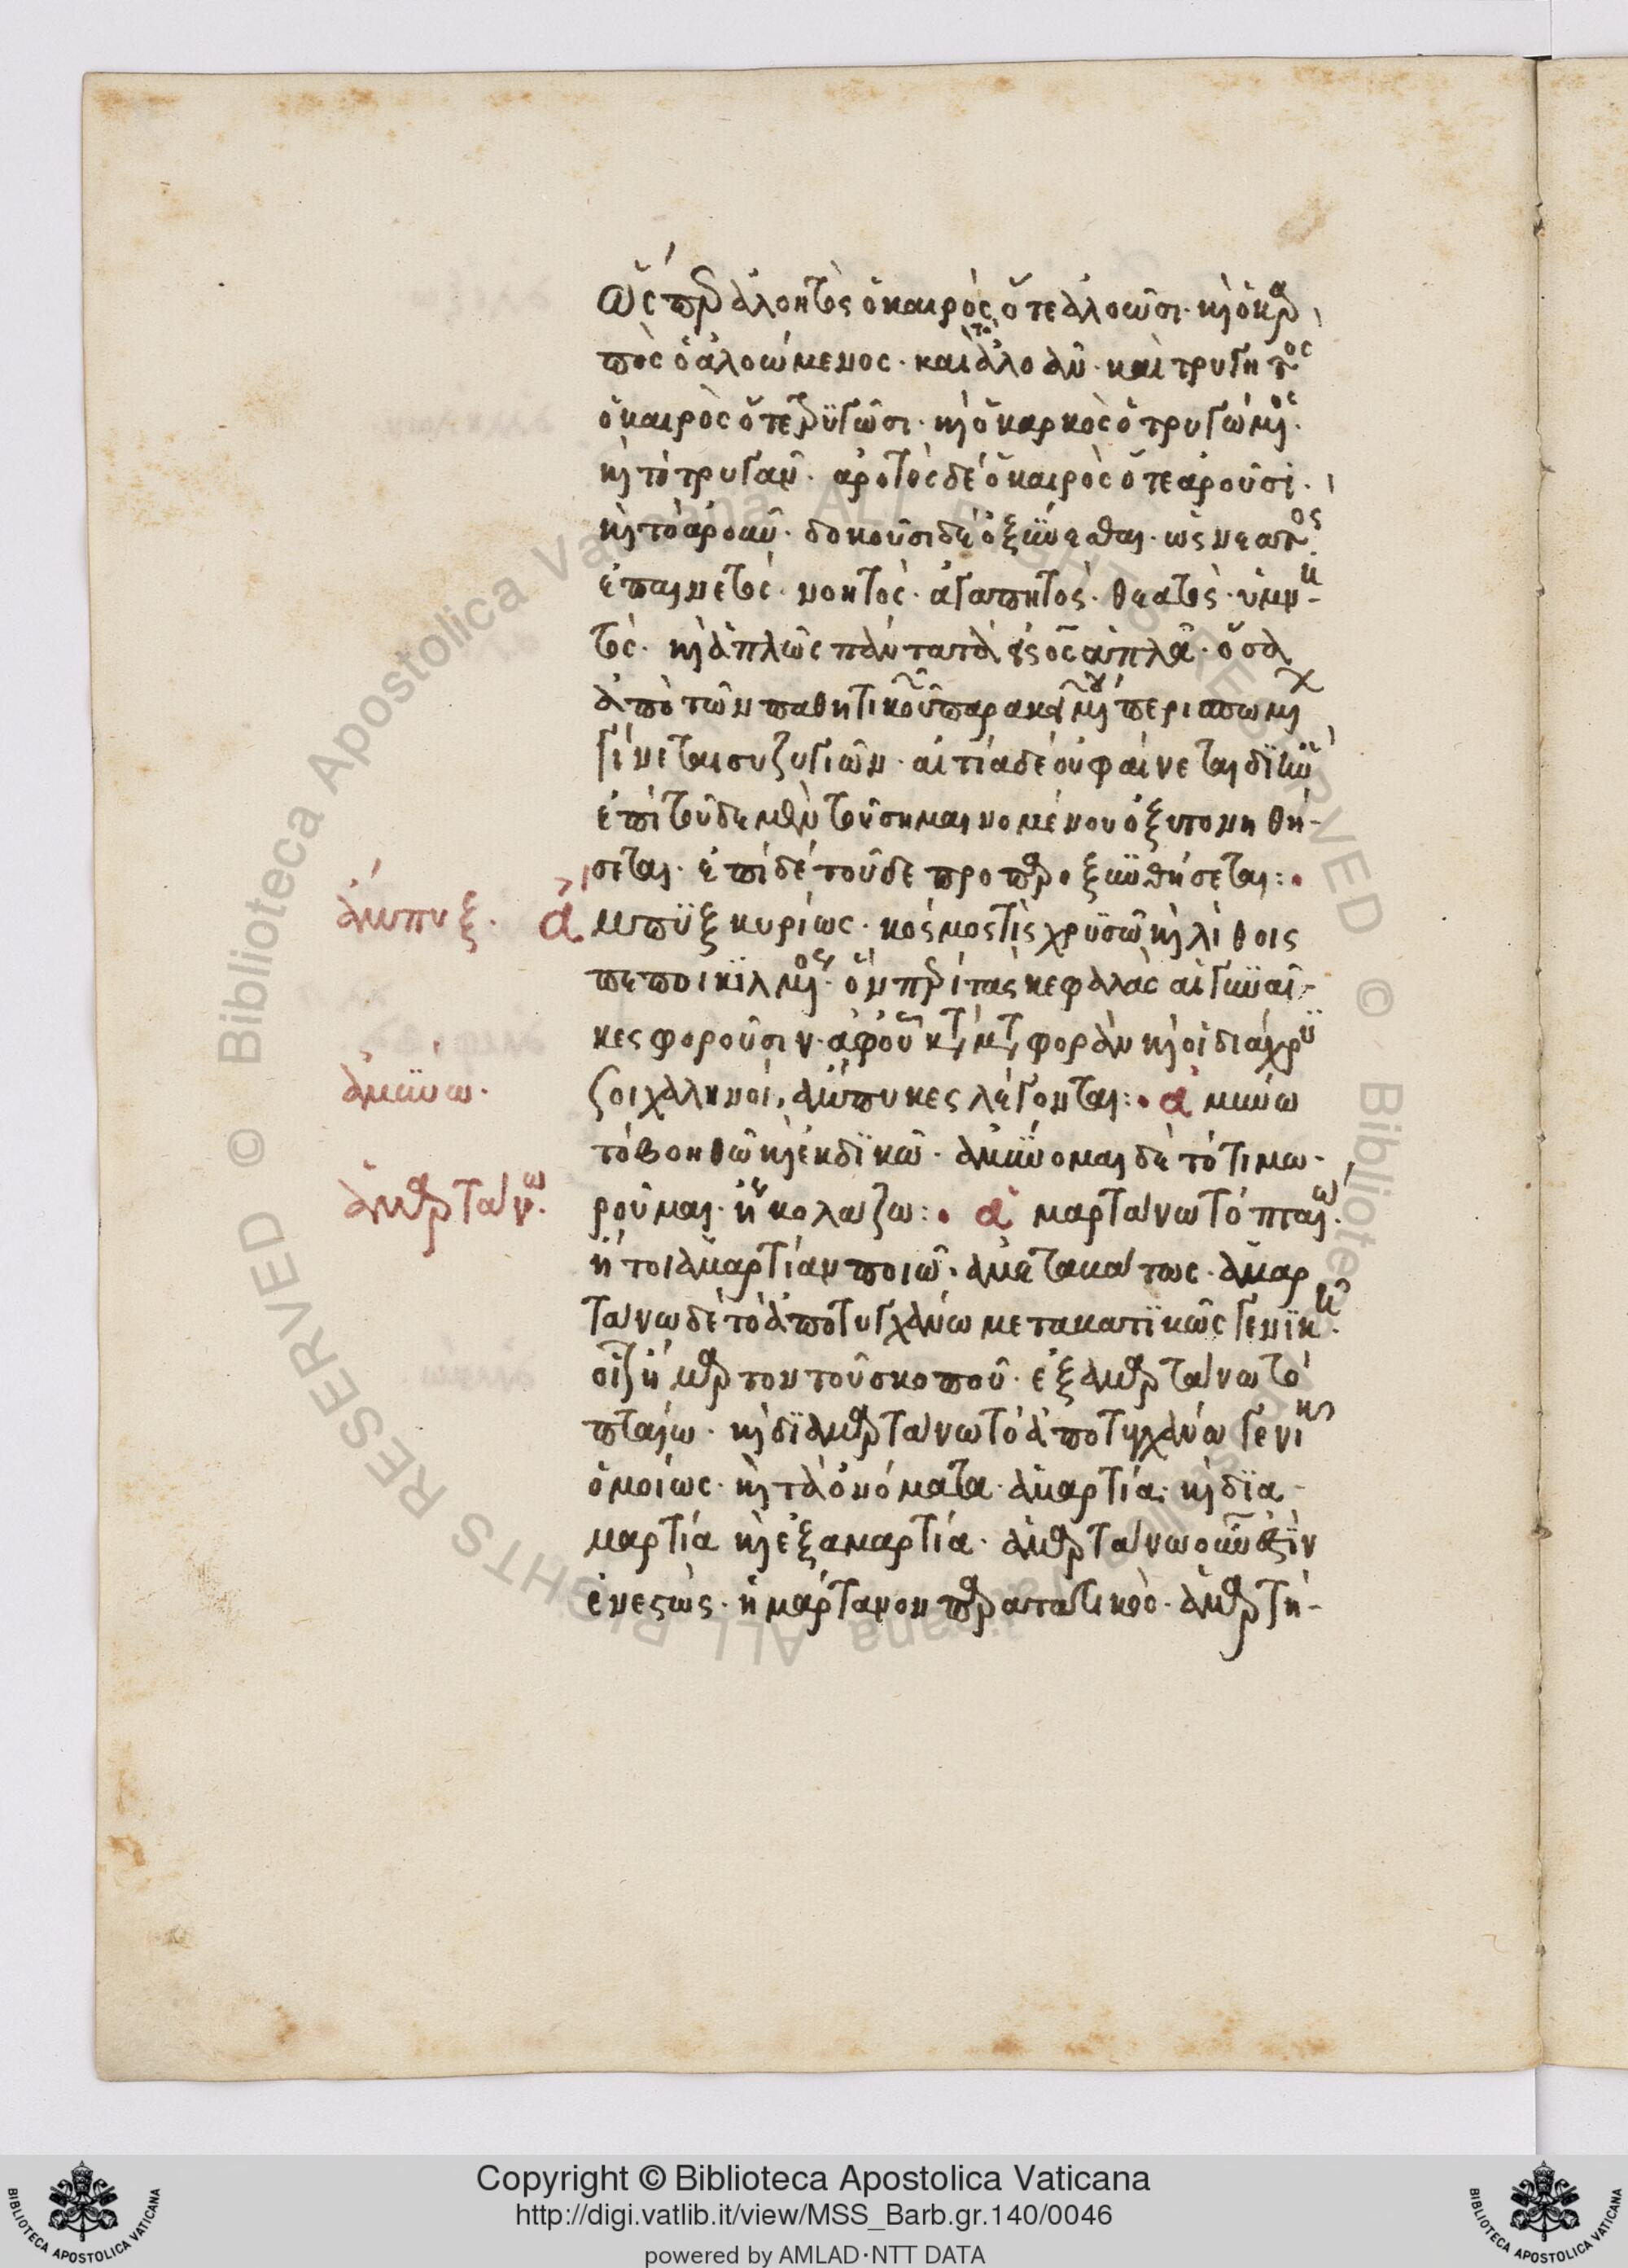 ὥσπερ ἀλοητὸς ὁ καιρὸς ὅτε ἀλοῶσι· καὶ ὁ καρ
πὸς ὁ ἀλοώμενος· καὶ τὸ ἀλοᾶν· καὶ τρυγητὸς
ὁ καιρὸς ὅτε τρυγῶσι· καὶ ὁ καρπὸς ὁ τρυγώμενος·
καὶ τὸ τρυγᾶν· ἀροτὸς δὲ ὁ καιρὸς ὅτε ἀροῦσι·
καὶ τὸ ἀροῦν· δοκοῦσι δὲ ὀξύνεσθαι· ὡς νεατὸς·
ἐπαινετὸς· νοητὸς· ἀγαπητὸς· θεατὸς· ὑμνη-
τὸς· καὶ ἁπλῶς πάντα τὰ εἰς ος ἁπλᾶ· ὅσα
ἀπὸ τῶν παθητικοῦ παρακειμένου περισπωμένων
γίνεται συζυγιῶν· αἰτία δὲ οὐ φαίνεται δι' ἣν
ἐπὶ τοῦδε μὲν τοῦ σημαινομένου ὀξυτονηθή-
σεται· ἐπὶ δὲ τοῦδε προπαροξυνθήσεται:
ἄμπυξ· ἄμπυξ κυρίως· κόσμος τὶς χρυσῶ καὶ λίθοις
πεποικιλμένος· ὃν περὶ τὰς κεφαλὰς αἱ γυναῖ-
κες φοροῦσιν· ἀφ' οὗ κατὰ μεταφορὰν καὶ οἱ διάχρυ
σοι χαλινοί, ἄμπυκες λέγονται:
ἀμύνω· ἀμύνω
τὸ βοηθῶ καὶ ἐκδικῶ· ἀμύνομαι δὲ τὸ τιμω-
ροῦμαι· ἢ κολάζω:
ἁμαρτάνω· ἁμαρτάνω τὸ πταίω·
ἤτοι ἁμαρτίαν ποιῶ· ἀμεταβάτως· ἁμαρ
τάνω δὲ τὸ ἀποτυγχάνω μεταβατικῶς γενικῇ·
ἥμαρτον τοῦ σκοποῦ· ἐξαμαρτάνω τὸ
πταίω· καὶ διαμαρτάνω τὸ ἀποτυγχάνω γενικῇ
ὁμοίως· καὶ τὰ ὀνόματα· ἁμαρτία· καὶ δια-
μαρτία καὶ ἐξαμαρτία· ἁμαρτάνω οὖν ἐστὶν
ἐνεστὼς· ἡμάρτανον παρατατικὸς· ἁμαρτή-
Copyright © Biblioteca Apostolica Vaticana
http://digi.vatlib.it/view/MSS_Barb.gr.140/0046
powered by AMLAD·NTT DATA
BIBLIOTECA APOSTOLICA VATICANA
BIBLIOTECA APOSTOLICA VATICANA